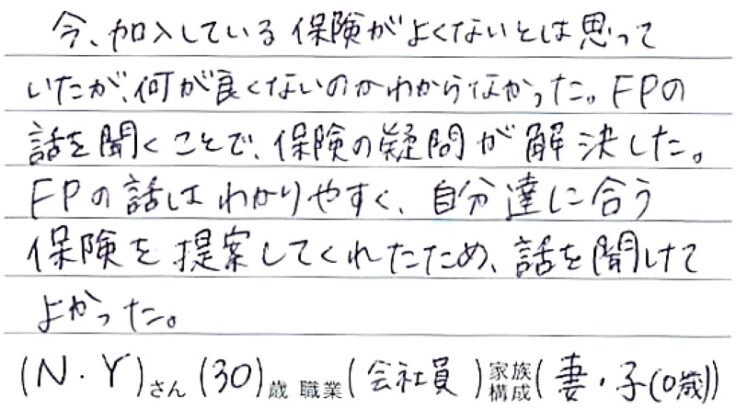 今、加入している保険がよくないとは思って
いたが、何が良くないのかわからなかった。FPの
話を聞くことで、保険の疑問が解決した。
FPの話はわかりやすく、自分達に合う
保険を提案してくれたため、話を聞けて
よかった。
(N.Y)さん(30)歳 職業(会社員)家族構成(妻・子(0歳))